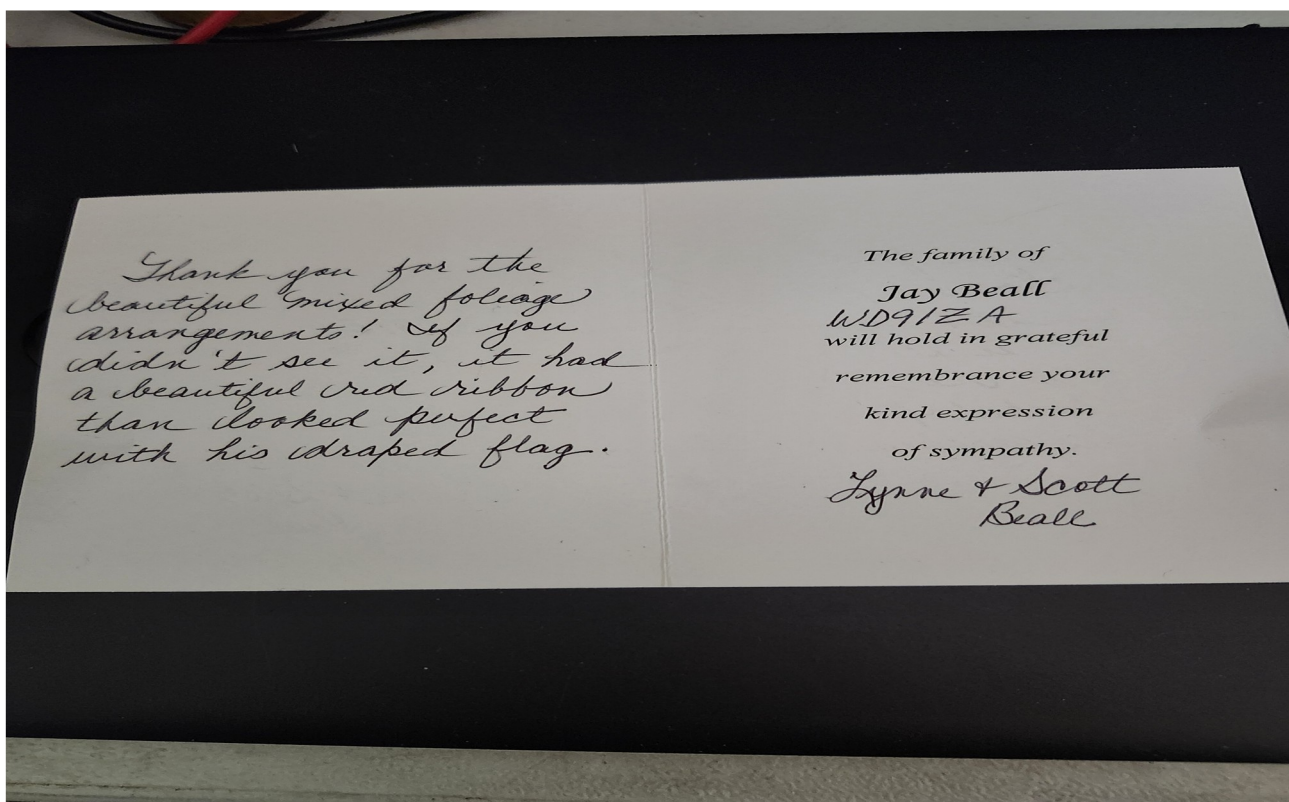 Thank you for the
beautiful mixed foliage
arrangements! If you
didn't see it, it had
a beautiful red ribbon
than looked perfect
with his draped flag.
The family of
Jay Beall
WD9IZA
will hold in grateful
remembrance your
kind expression
of sympathy.
Lynne & Scott
Beall